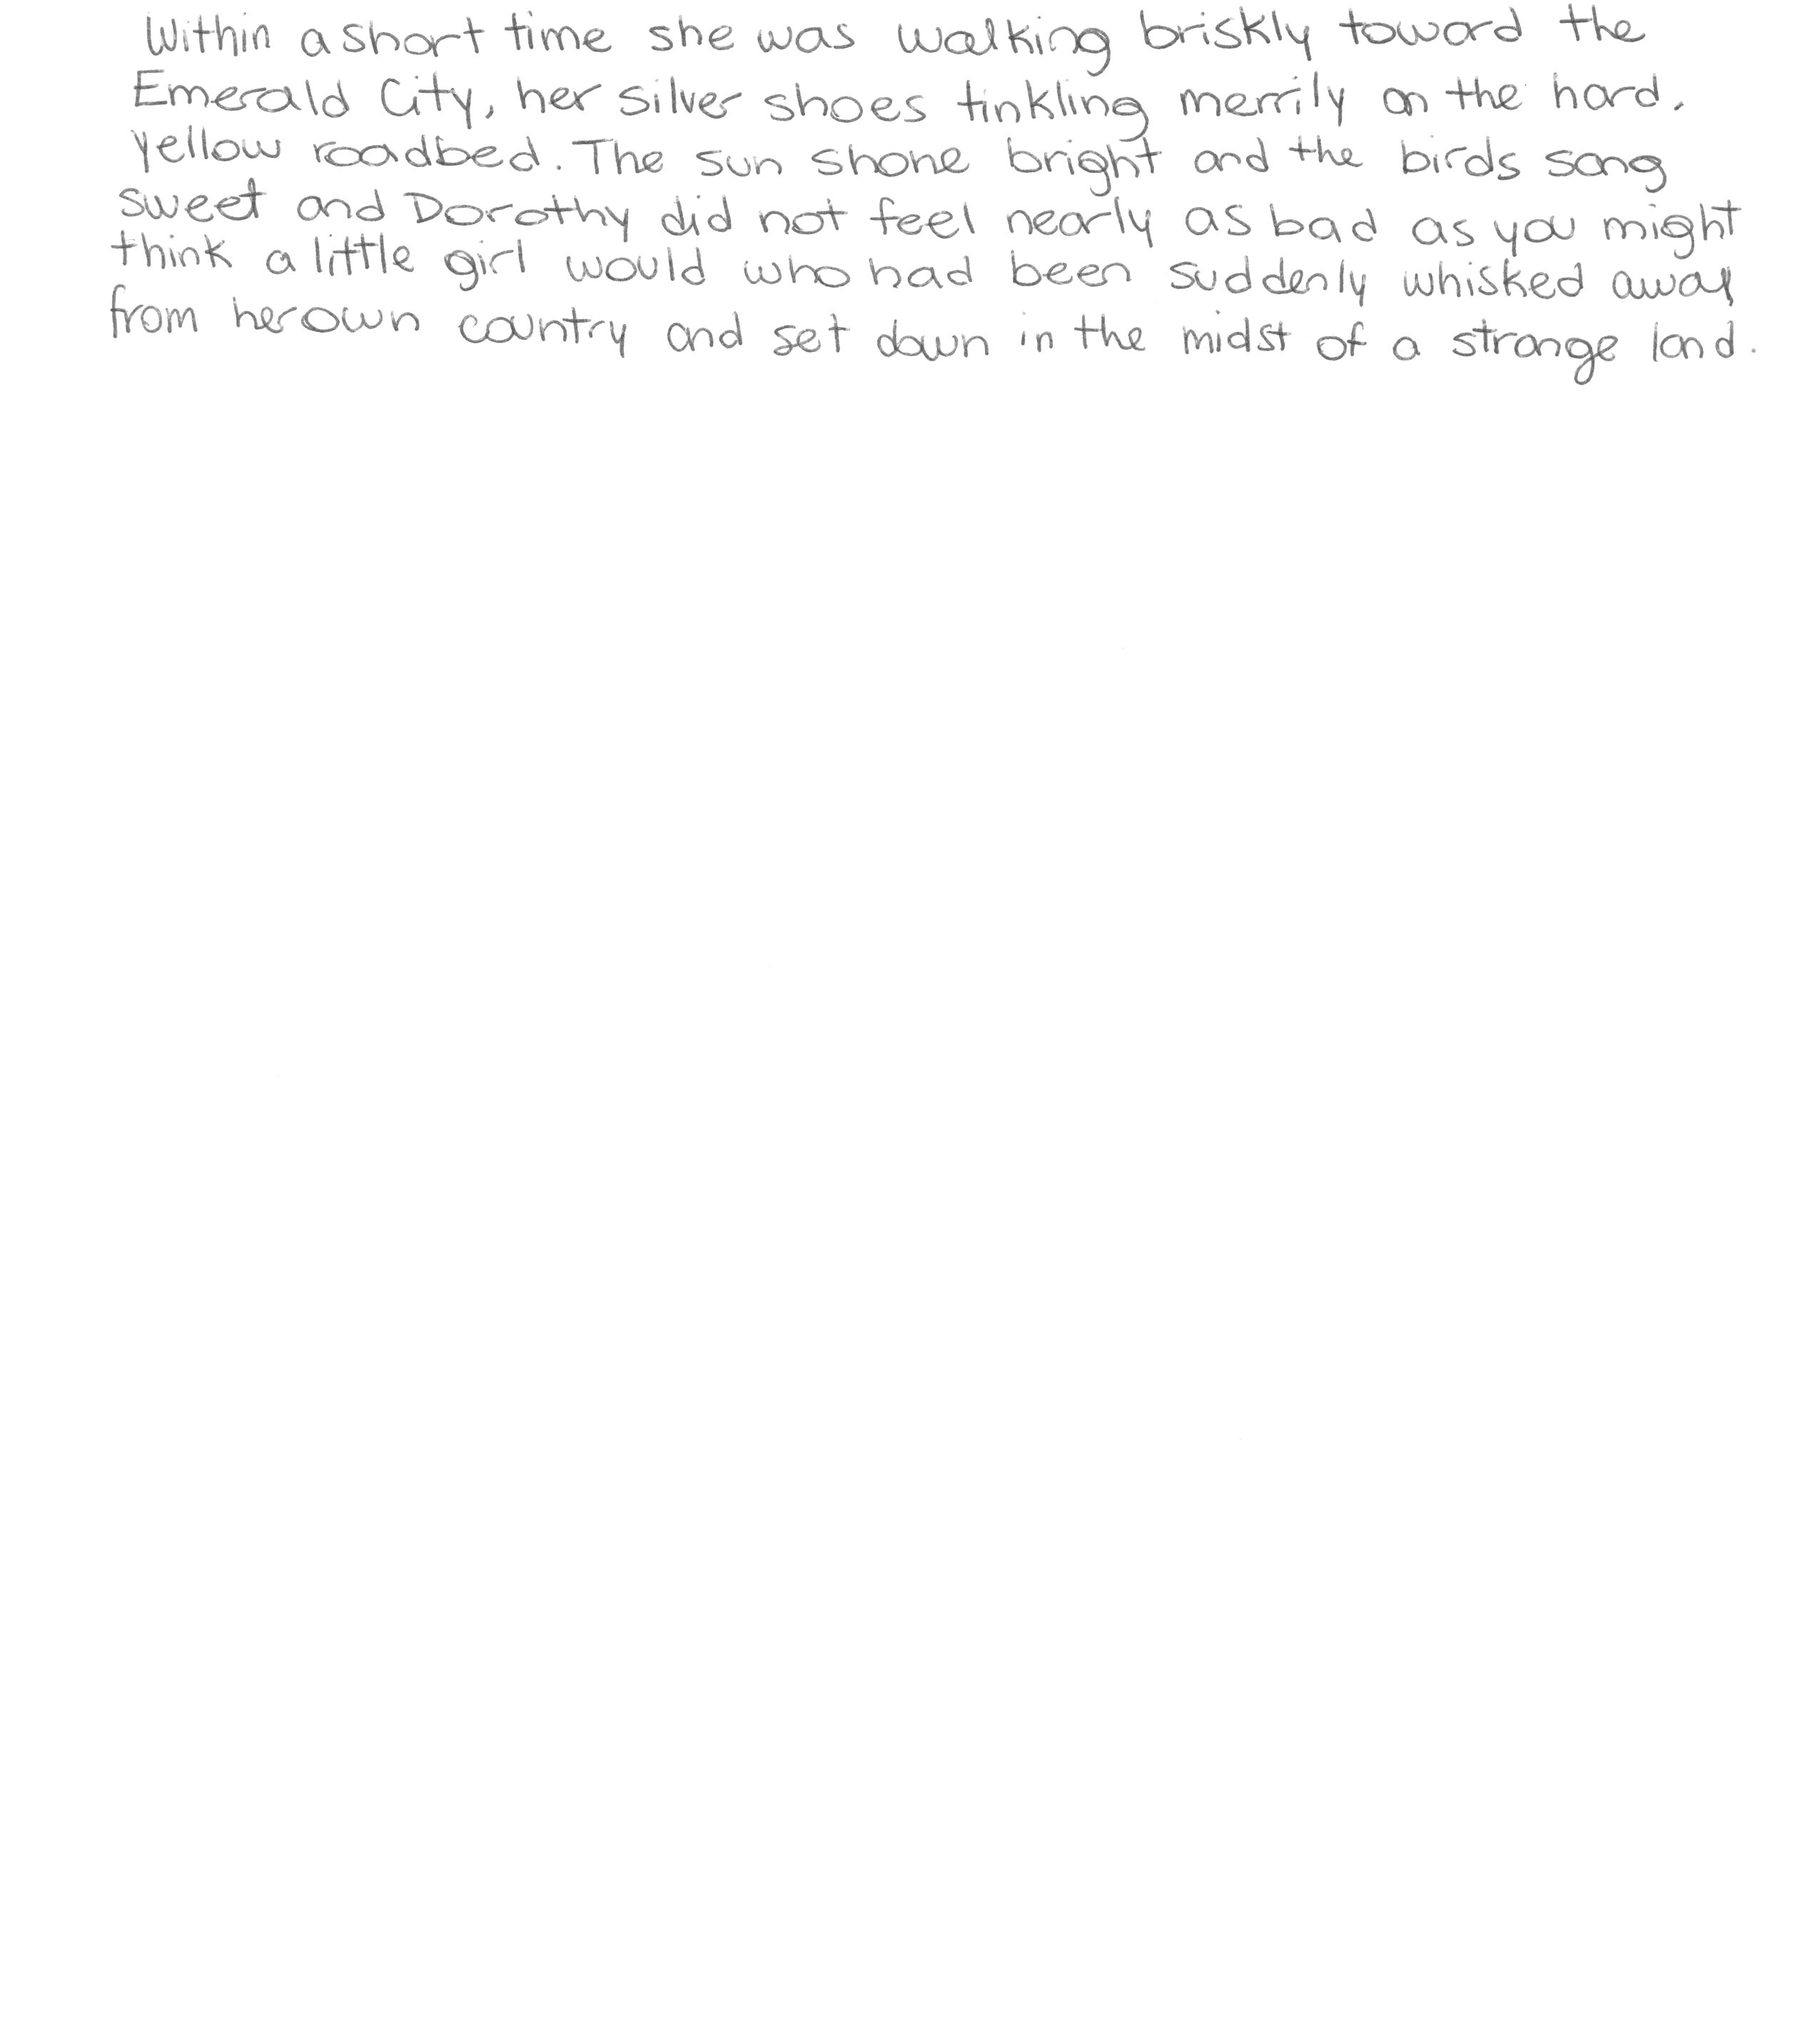 Within a short time she was walking briskly toward the
Emerald City, her silver shoes tinkling merrily on the hard,
yellow roadbed. The sun shone bright and the birds sang
sweet and Dorothy did not feel nearly as bad as you might
think a little girl would who had been suddenly whisked away
from her own country and set down in the midst of a strange land.